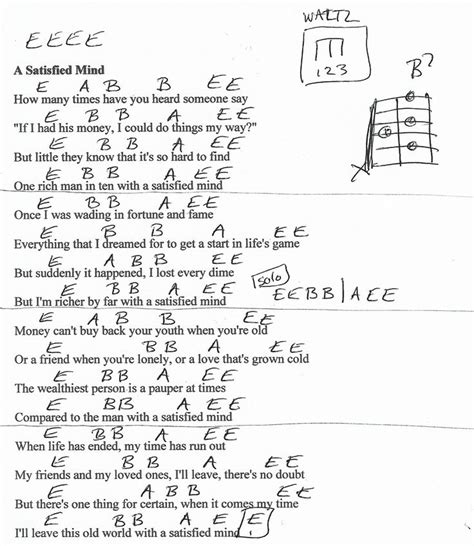 EEEE
WALTZ
123
B7
A Satisfied Mind
E A B B EE
How many times have you heard someone say
E B B A EE
"If I had his money, I could do things my way?"
E B B A EE
But little they know that it's so hard to find
E B B A EE
One rich man in ten with a satisfied mind
E B B A EE
Once I was wading in fortune and fame
E B B A EE
Everything that I dreamed for to get a start in life's game
E A B B EE
But suddenly it happened, I lost every dime
E B B A EE
But I'm richer by far with a satisfied mind
Solo
EEBB|AEE
E A B B EE
Money can't buy back your youth when you're old
E B B A EE
Or a friend when you're lonely, or a love that's grown cold
E B B A EE
The wealthiest person is a pauper at times
E BB A EE
Compared to the man with a satisfied mind
E B B A EE
When life has ended, my time has run out
E B B A EE
My friends and my loved ones, I'll leave, there's no doubt
E A B B EE
But there's one thing for certain, when it comes my time
E BB A E E
I'll leave this old world with a satisfied mind